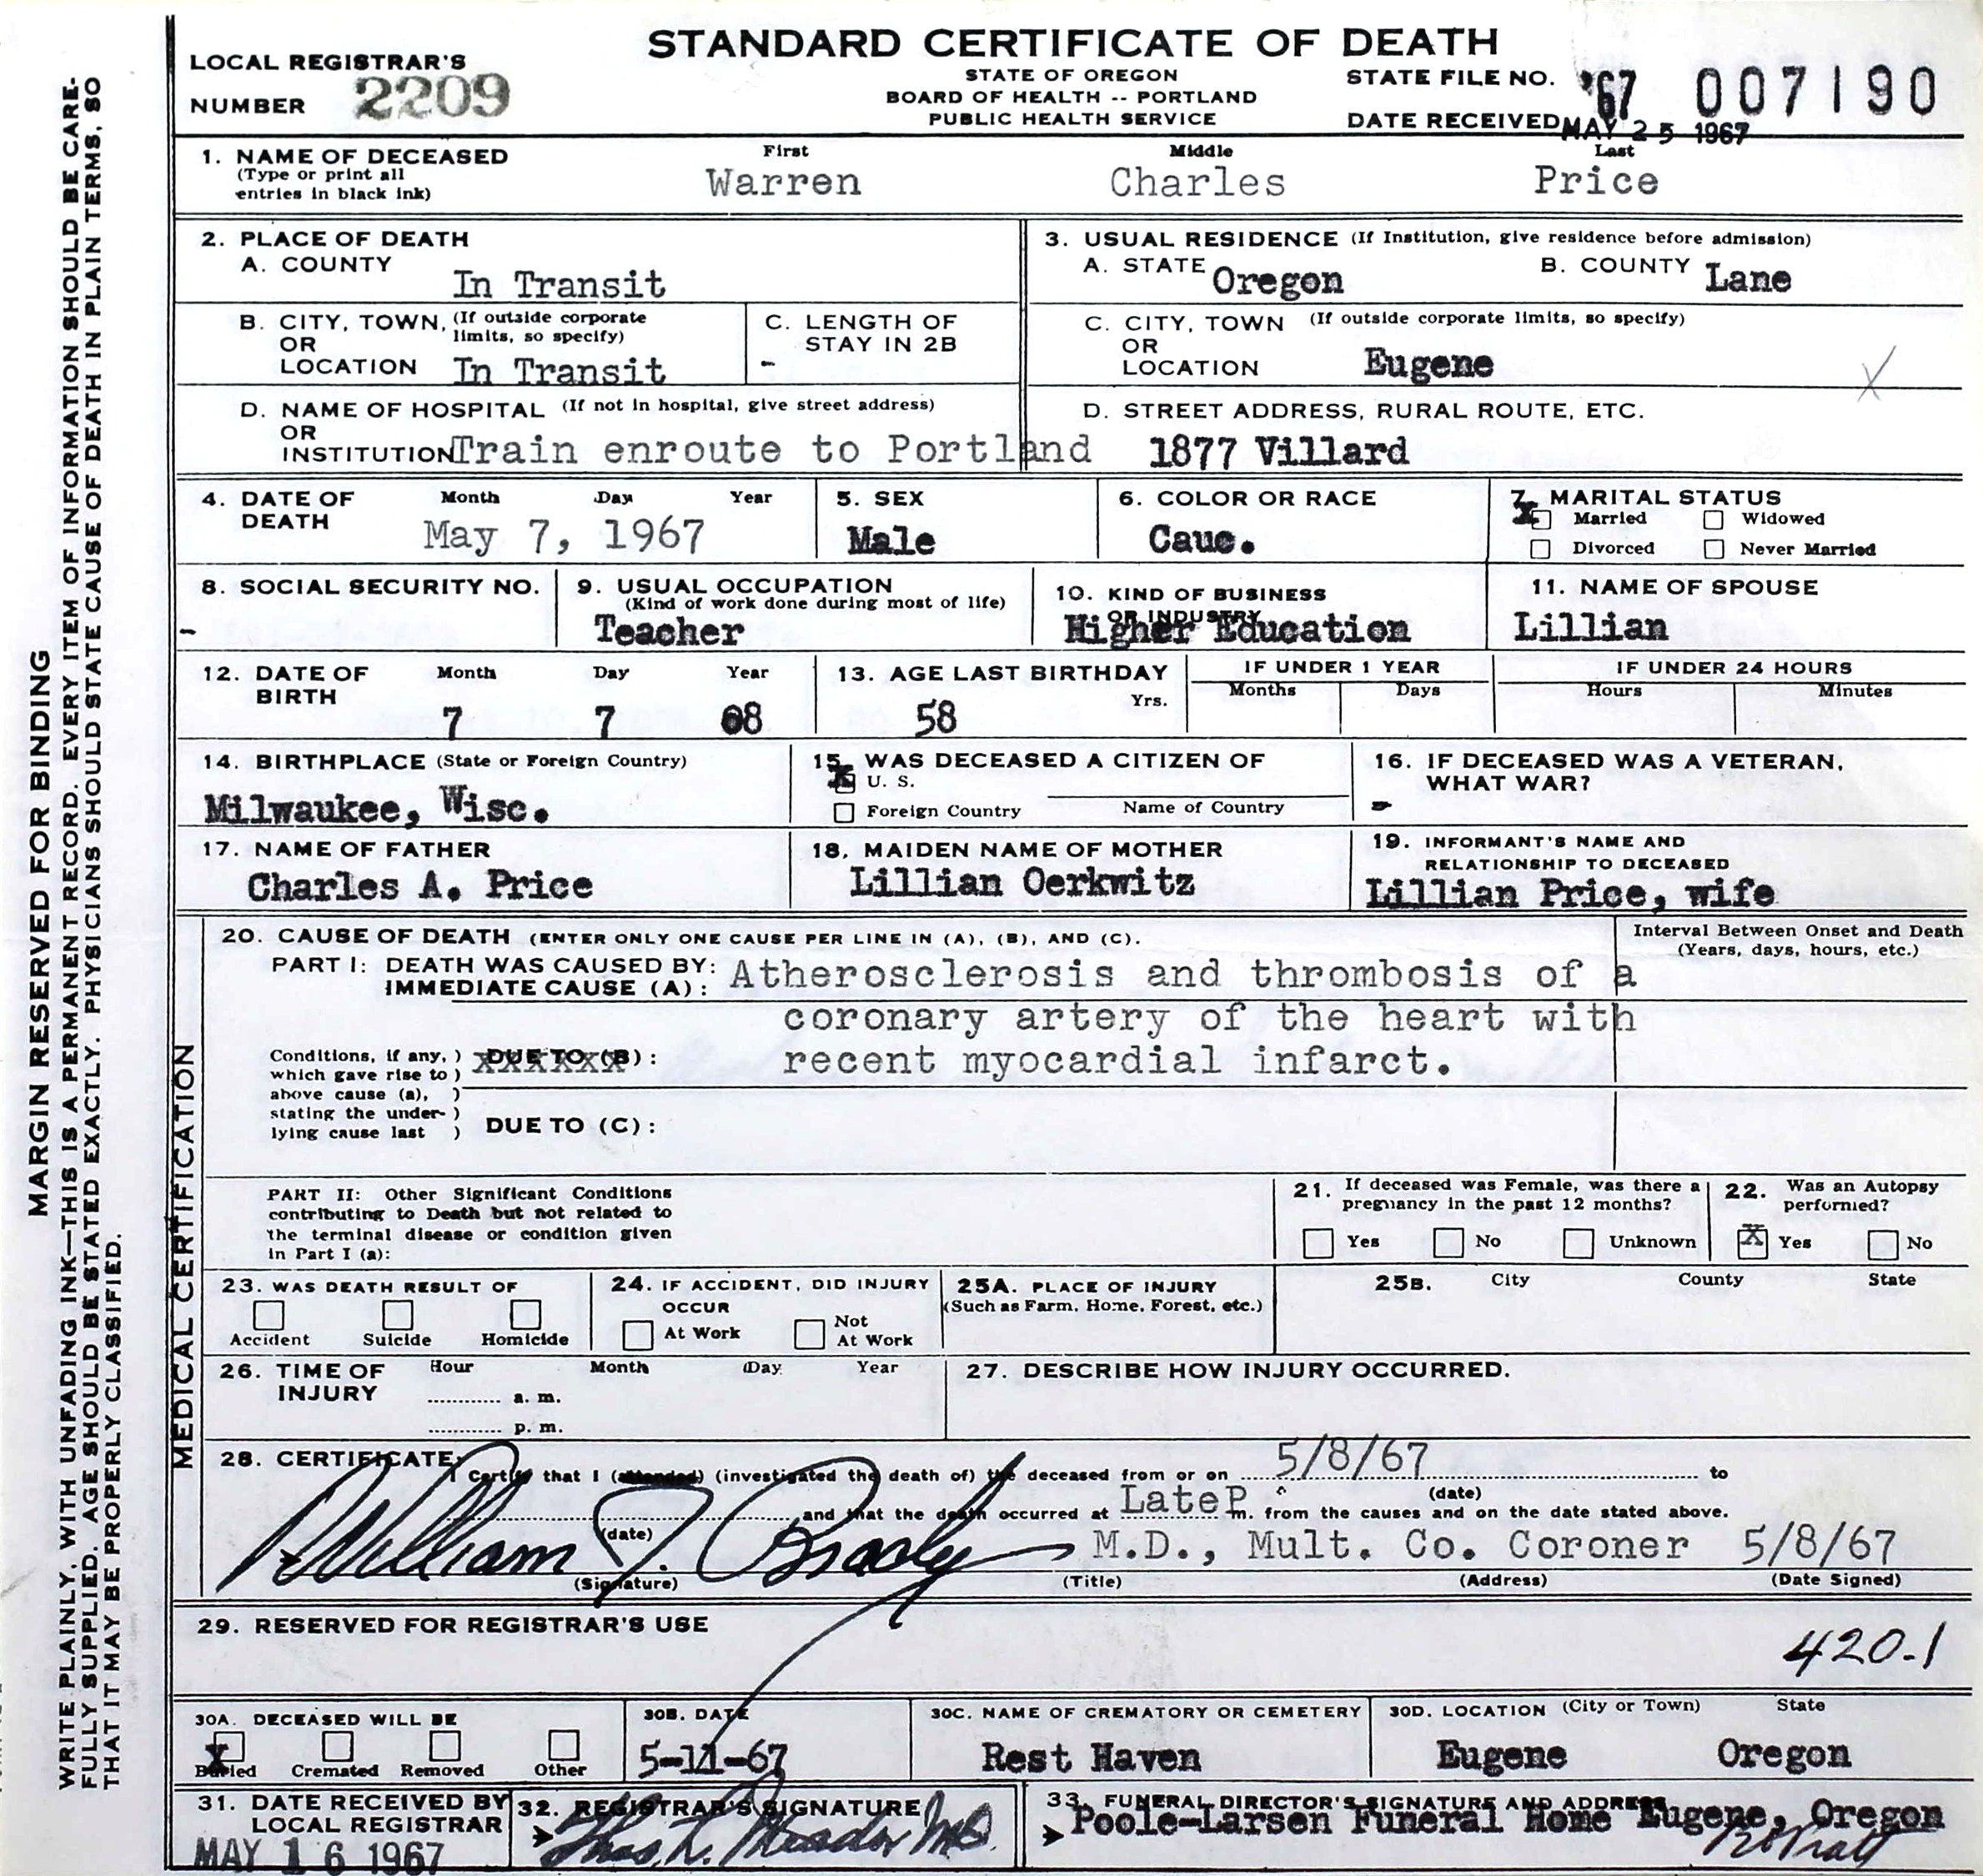 STANDARD CERTIFICATE OF DEATH
STATE OF OREGON
BOARD OF HEALTH -- PORTLAND
PUBLIC HEALTH SERVICE
LOCAL REGISTRAR'S
NUMBER 2209
STATE FILE NO. '67 007190
DATE RECEIVED MAY 25 1967
1. NAME OF DECEASED
(Type or print all
entries in black ink)
First Middle Last
Warren Charles Price
2. PLACE OF DEATH
A. COUNTY
In Transit
3. USUAL RESIDENCE (If Institution, give residence before admission)
A. STATE Oregon B. COUNTY Lane
B. CITY, TOWN, (If outside corporate
OR limits, so specify)
LOCATION In Transit
C. LENGTH OF
STAY IN 2B
-
C. CITY, TOWN (If outside corporate limits, so specify)
OR
LOCATION Eugene
X
D. NAME OF HOSPITAL (If not in hospital, give street address)
OR
INSTITUTION Train enroute to Portland
D. STREET ADDRESS, RURAL ROUTE, ETC.
1877 Villard
4. DATE OF
DEATH
Month Day Year
May 7, 1967
5. SEX
Male
6. COLOR OR RACE
Cauc.
7. MARITAL STATUS
X Married Widowed
Divorced Never Married
8. SOCIAL SECURITY NO.
-
9. USUAL OCCUPATION
(Kind of work done during most of life)
Teacher
10. KIND OF BUSINESS
OR INDUSTRY
Higher Education
11. NAME OF SPOUSE
Lillian
12. DATE OF
BIRTH
Month Day Year
7 7 08
13. AGE LAST BIRTHDAY
Yrs.
58
IF UNDER 1 YEAR
Months Days
IF UNDER 24 HOURS
Hours Minutes
14. BIRTHPLACE (State or Foreign Country)
Milwaukee, Wisc.
15. WAS DECEASED A CITIZEN OF
X U. S.
Foreign Country Name of Country
16. IF DECEASED WAS A VETERAN,
WHAT WAR?
-
17. NAME OF FATHER
Charles A. Price
18. MAIDEN NAME OF MOTHER
Lillian Oerkwitz
19. INFORMANT'S NAME AND
RELATIONSHIP TO DECEASED
Lillian Price, wife
MEDICAL CERTIFICATION
20. CAUSE OF DEATH (ENTER ONLY ONE CAUSE PER LINE IN (A), (B), AND (C).
Interval Between Onset and Death
(Years, days, hours, etc.)
PART I: DEATH WAS CAUSED BY:
IMMEDIATE CAUSE (A): Atherosclerosis and thrombosis of a
coronary artery of the heart with
DUE TO (B): recent myocardial infarct.
XXXXXXX
Conditions, if any, )
which gave rise to )
above cause (a), )
stating the under- )
lying cause last )
DUE TO (C):
PART II: Other Significant Conditions
contributing to Death but not related to
the terminal disease or condition given
in Part I (a):
21. If deceased was Female, was there a
pregnancy in the past 12 months?
Yes No Unknown
22. Was an Autopsy
performed?
X Yes No
23. WAS DEATH RESULT OF
Accident Suicide Homicide
24. IF ACCIDENT, DID INJURY
OCCUR
At Work Not
At Work
25A. PLACE OF INJURY
(Such as Farm, Home, Forest, etc.)
25B. City County State
26. TIME OF
INJURY
Hour Month Day Year
a. m.
p. m.
27. DESCRIBE HOW INJURY OCCURRED.
28. CERTIFICATE:
I Certify that I (attended) (investigated the death of) the deceased from or on 5/8/67 to
(date)
and that the death occurred at Late P. m. from the causes and on the date stated above.
(date)
William J. Brady M.D., Mult. Co. Coroner 5/8/67
(Signature) (Title) (Address) (Date Signed)
29. RESERVED FOR REGISTRAR'S USE
420.1
30A. DECEASED WILL BE
X
Buried Cremated Removed Other
30B. DATE
5-11-67
30C. NAME OF CREMATORY OR CEMETERY
Rest Haven
30D. LOCATION (City or Town) State
Eugene Oregon
31. DATE RECEIVED BY
LOCAL REGISTRAR
MAY 16 1967
32. REGISTRAR'S SIGNATURE
Thos. L. Meador MD.
33. FUNERAL DIRECTOR'S SIGNATURE AND ADDRESS
Poole-Larsen Funeral Home Eugene, Oregon
MARGIN RESERVED FOR BINDING
WRITE PLAINLY, WITH UNFADING INK—THIS IS A PERMANENT RECORD. EVERY ITEM OF INFORMATION SHOULD BE CARE-
FULLY SUPPLIED. AGE SHOULD BE STATED EXACTLY. PHYSICIANS SHOULD STATE CAUSE OF DEATH IN PLAIN TERMS, SO
THAT IT MAY BE PROPERLY CLASSIFIED.